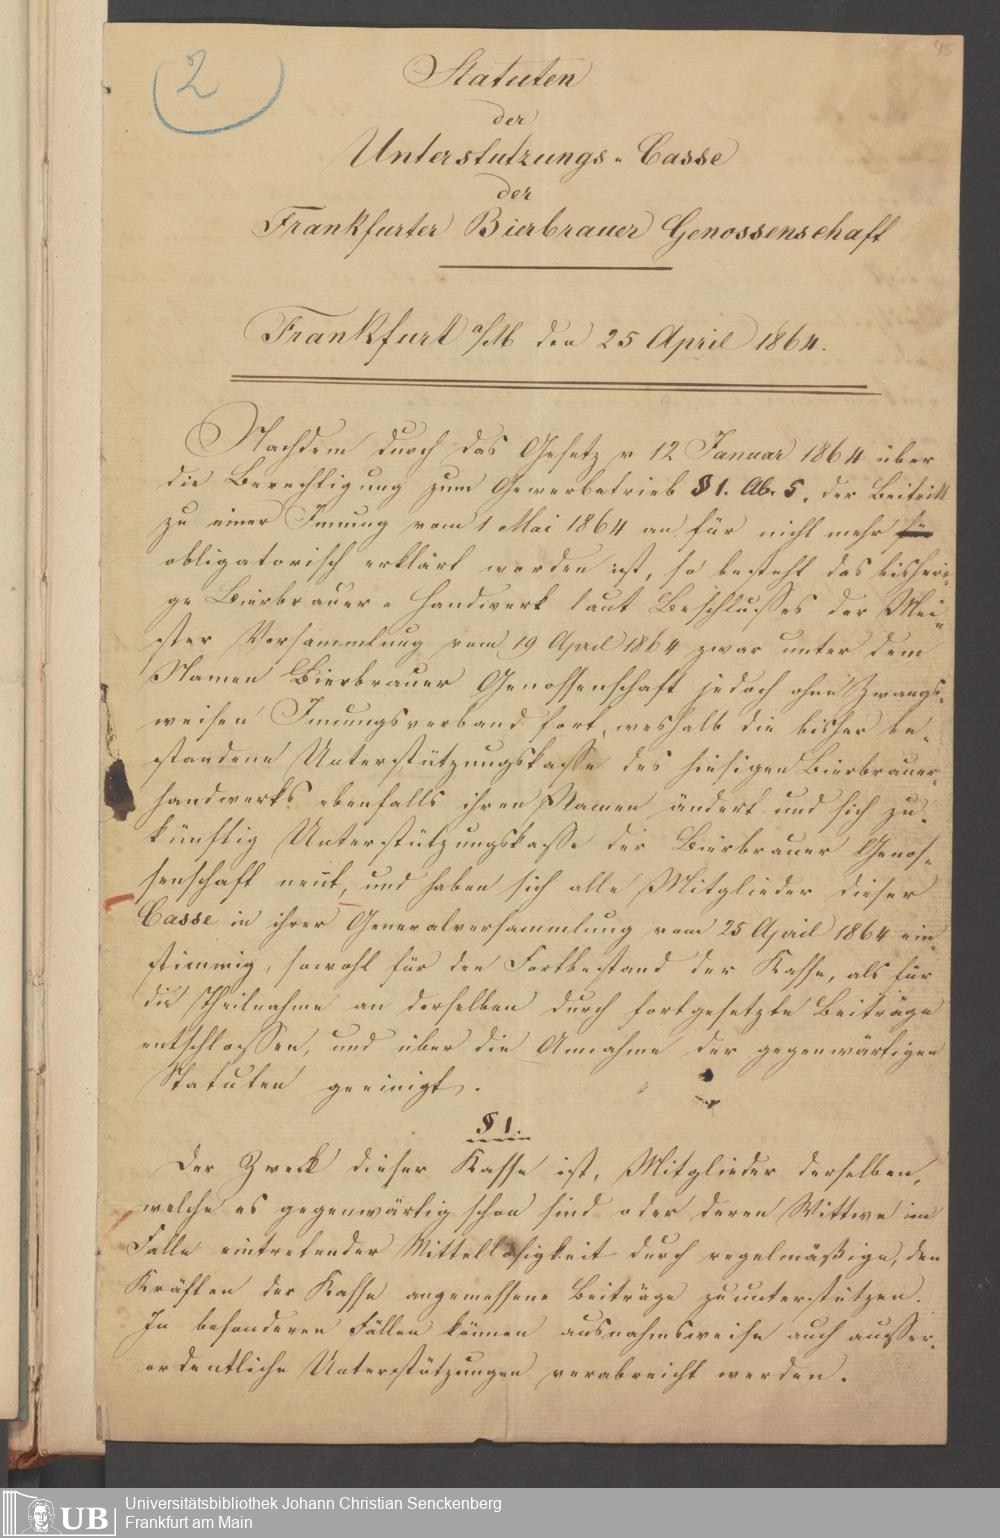 45
2
Statuten
der
Unterstutzungs-Casse
der
Frankfurter Bierbrauer Genossenschaft
Frankfurt a/M den 25 April 1864.
Nachdem durch das Gesetz v 12 Januar 1864 über
die Berechtigung zum Gewerbetrieb § 1. Ab. 5. der Beitritt
zu einer Innung vom 1 Mai 1864 an für nicht mehr für
obligatorisch erklärt worden ist, so besteht das bisheri-
ge Bierbrauer-Handwerk laut Beschlusses der Mei-
ster Versammlung vom 19 April 1864 zwar unter dem
Namen Bierbrauer Genossenschaft jedoch ohne Zwangs-
weisen Innungsverband fort, weshalb die bisher be-
standene Unterstützungskasse des hiesigen Bierbrauer-
handwerks ebenfalls ihren Namen ändert und sich zu-
künftig Unterstützungskasse der Bierbrauer Genos-
senschaft nennt, und haben sich alle Mitglieder dieser
Casse in ihrer Generalversammlung vom 25 April 1864 ein-
stimmig, sowohl für den Fortbestand der Kasse, als für
die Theilnahme an derselben durch fortgesetzte Beiträge
entschlossen, und über die Annahme der gegenwärtigen
Statuten geeinigt.
§ 1.
Der Zweck dieser Kasse ist, Mitglieder derselben,
welche es gegenwärtig schon sind oder deren Wittwe im
Falle eintretender Mittellosigkeit durch regelmäßige, den
Kräften der Kasse angemessene Beiträge zu unterstützen.
In besonderen Fällen können ausnahmsweise auch ausser-
ordentliche Unterstützungen verabreicht werden.
UB
Universitätsbibliothek Johann Christian Senckenberg
Frankfurt am Main